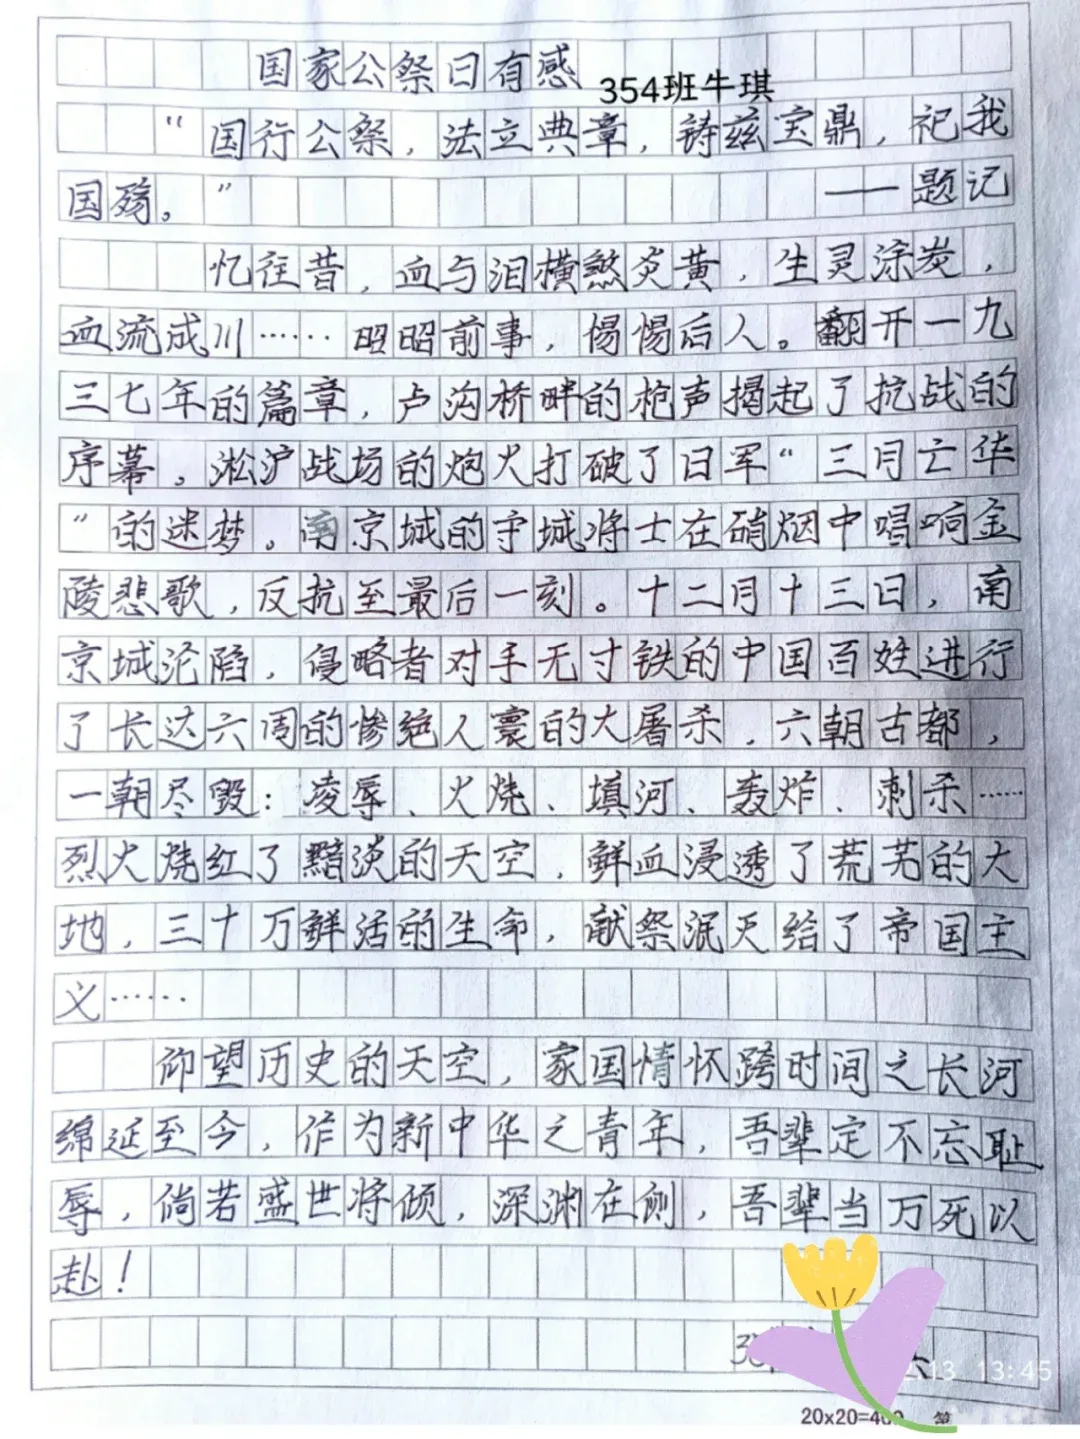 国家公祭日有感
354班牛琪
“国行公祭，法立典章，铸兹宝鼎，祀我
国殇。” ——题记
忆往昔，血与泪横煞炎黄，生灵涂炭，
血流成川……昭昭前事，惕惕后人。翻开一九
三七年的篇章，卢沟桥畔的枪声揭起了抗战的
序幕。淞沪战场的炮火打破了日军“三月亡华
”的迷梦。南京城的守城将士在硝烟中唱响金
陵悲歌，反抗至最后一刻。十二月十三日，南
京城沦陷，侵略者对手无寸铁的中国百姓进行
了长达六周的惨绝人寰的大屠杀，六朝古都，
一朝尽毁：凌辱、火烧、填河、轰炸、刺杀……
烈火烧红了黯淡的天空，鲜血浸透了荒芜的大
地，三十万鲜活的生命，献祭泯灭给了帝国主
义……
仰望历史的天空，家国情怀跨时间之长河
绵延至今，作为新中华之青年，吾辈定不忘耻
辱，倘若盛世将倾，深渊在侧，吾辈当万死以
赴！
13 13:45
20x20=400